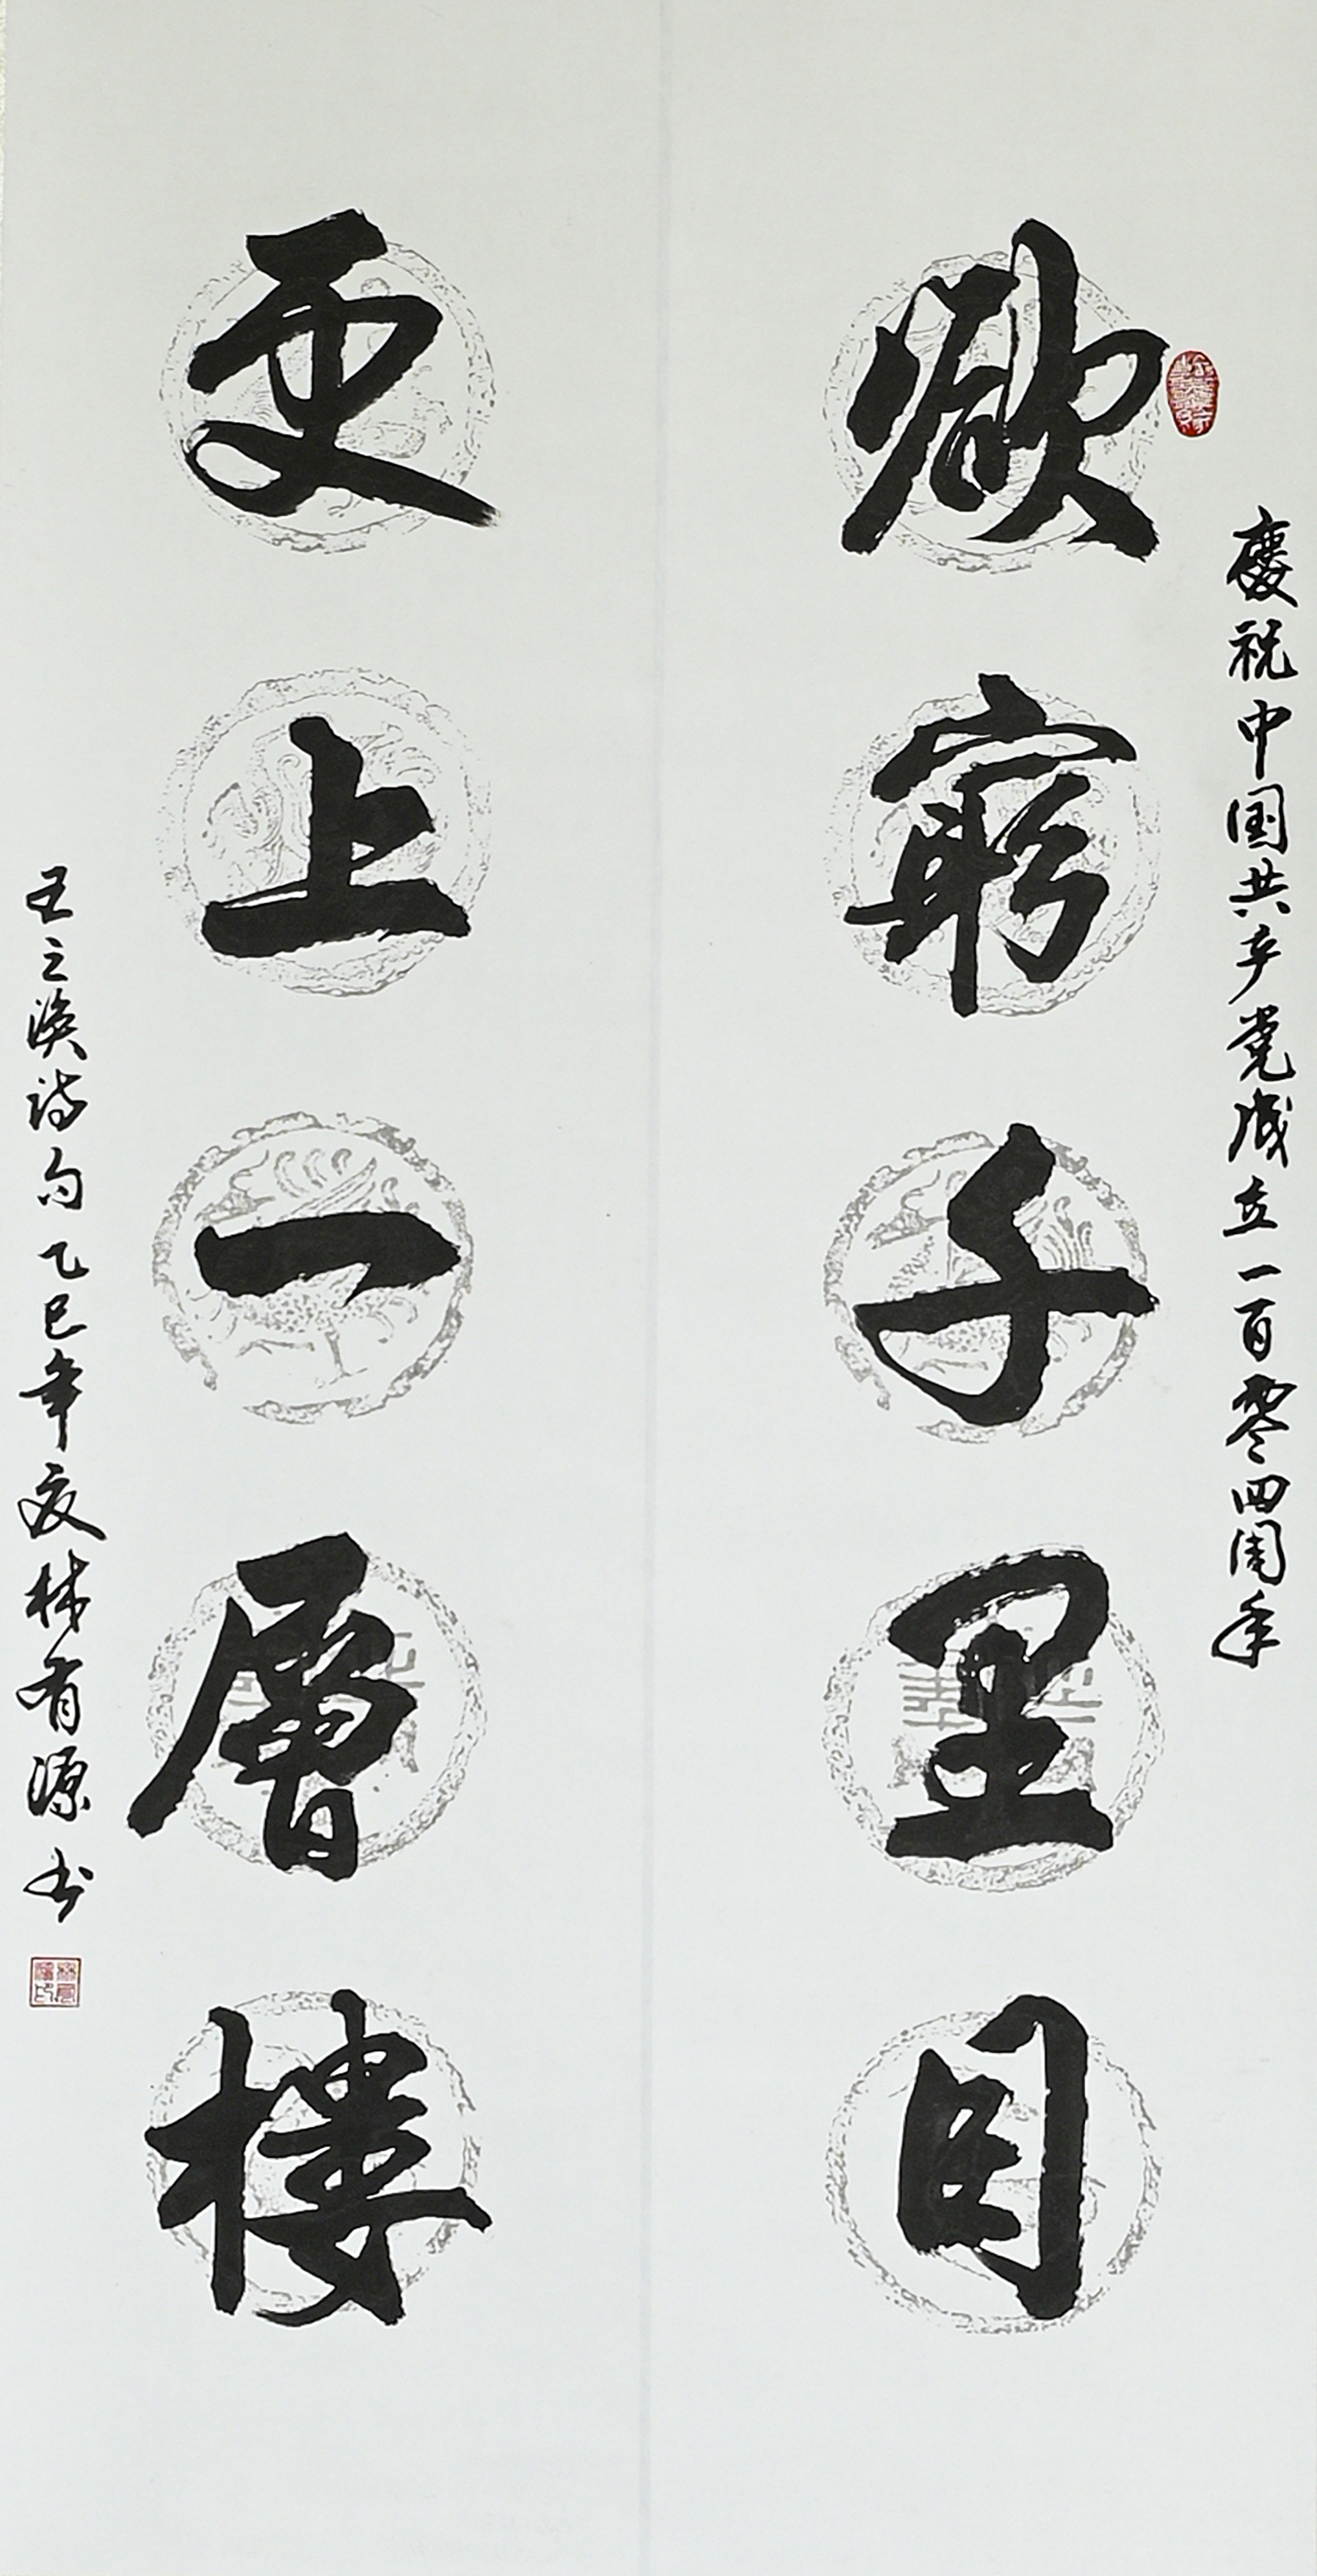 慶祝中国共产党成立一百零四周年
欲窮千里目
更上一層樓
王之渙诗句乙巳年夏林有源书